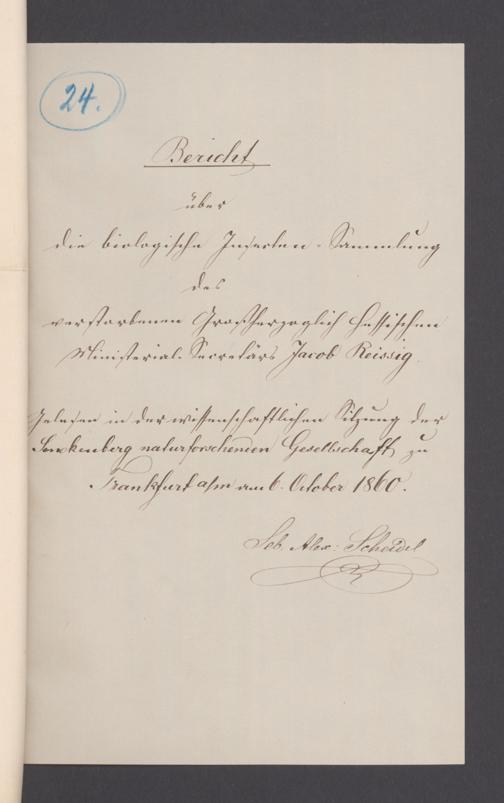 24.
Bericht
über
die biologische Insecten-Sammlung
des
verstorbenen Großherzoglich Hessischen
Ministerial-Secretärs Jacob Reissig.
Gelesen in der wissenschaftlichen Sitzung der
Senckenberg naturforschenden Gesellschaft zu
Frankfurt a/m am 6. October 1860.
Seb. Alex: Scheidel